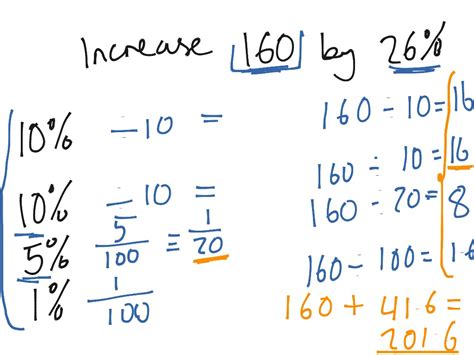 Increase 160 by 26%
10% ÷10 = 160 ÷ 10 = 16
10% ÷10 = 160 ÷ 10 = 16
5% 5/100 = 1/20 160 ÷ 20 = 8
1% 1/100 160 ÷ 100 = 1.6
160 + 41.6 =
201.6